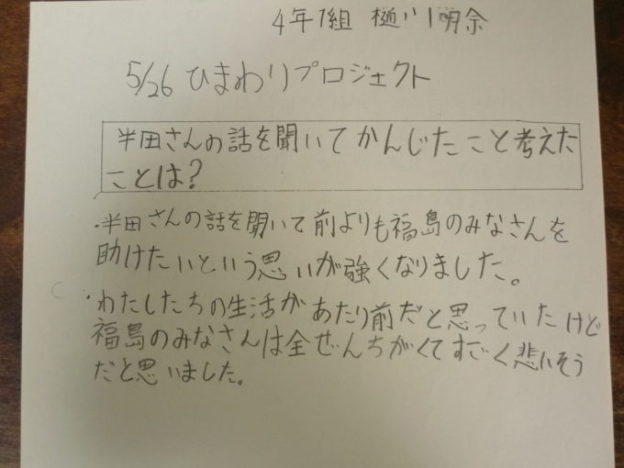 4年1組 樋川明奈
5/26 ひまわりプロジェクト
半田さんの話を聞いてかんじたこと考えた
ことは?
・半田さんの話を聞いて前よりも福島のみなさんを
助けたいという思いが強くなりました。
・わたしたちの生活があたり前だと思っていたけど
福島のみなさんは全ぜんちがくてすごく悲しそう
だと思いました。